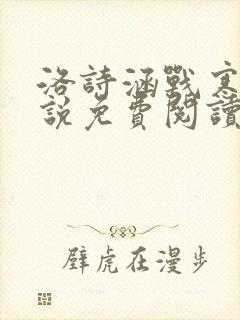 洛詩涵戰寒
說免費閱讀
壁虎在漫步